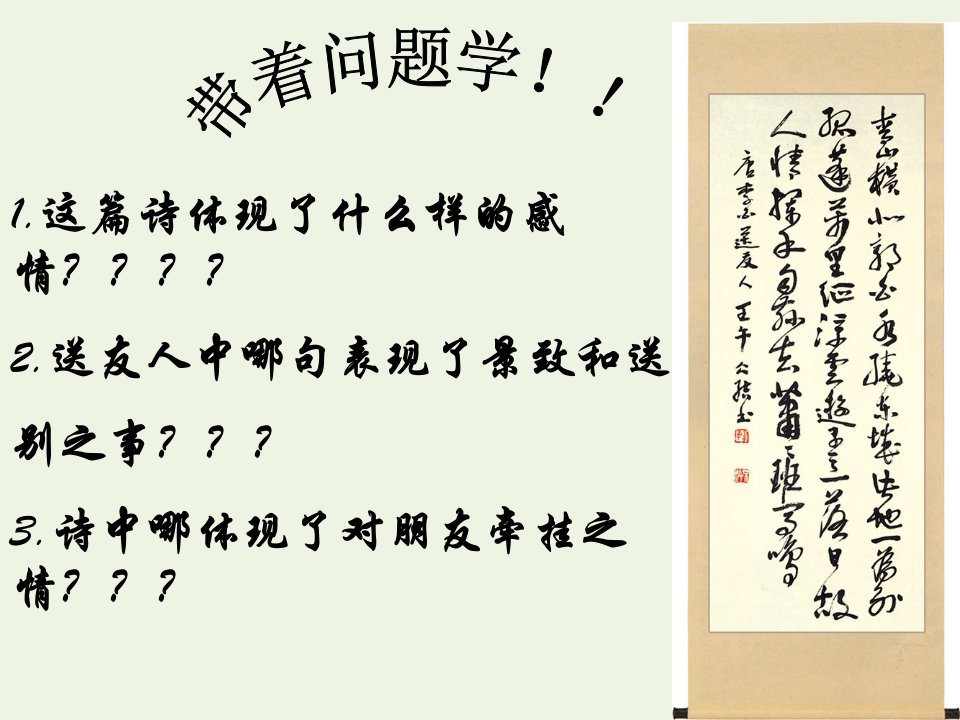 带着问题学！！
1.这篇诗体现了什么样的感
情？？？？
2.送友人中哪句表现了景致和送
别之事？？？
3.诗中哪体现了对朋友牵挂之
情？？？
青山横北郭白水绕东城此地一为别
孤蓬万里征浮云游子意落日故
人情挥手自兹去萧萧班马鸣
唐李白送友人 壬午